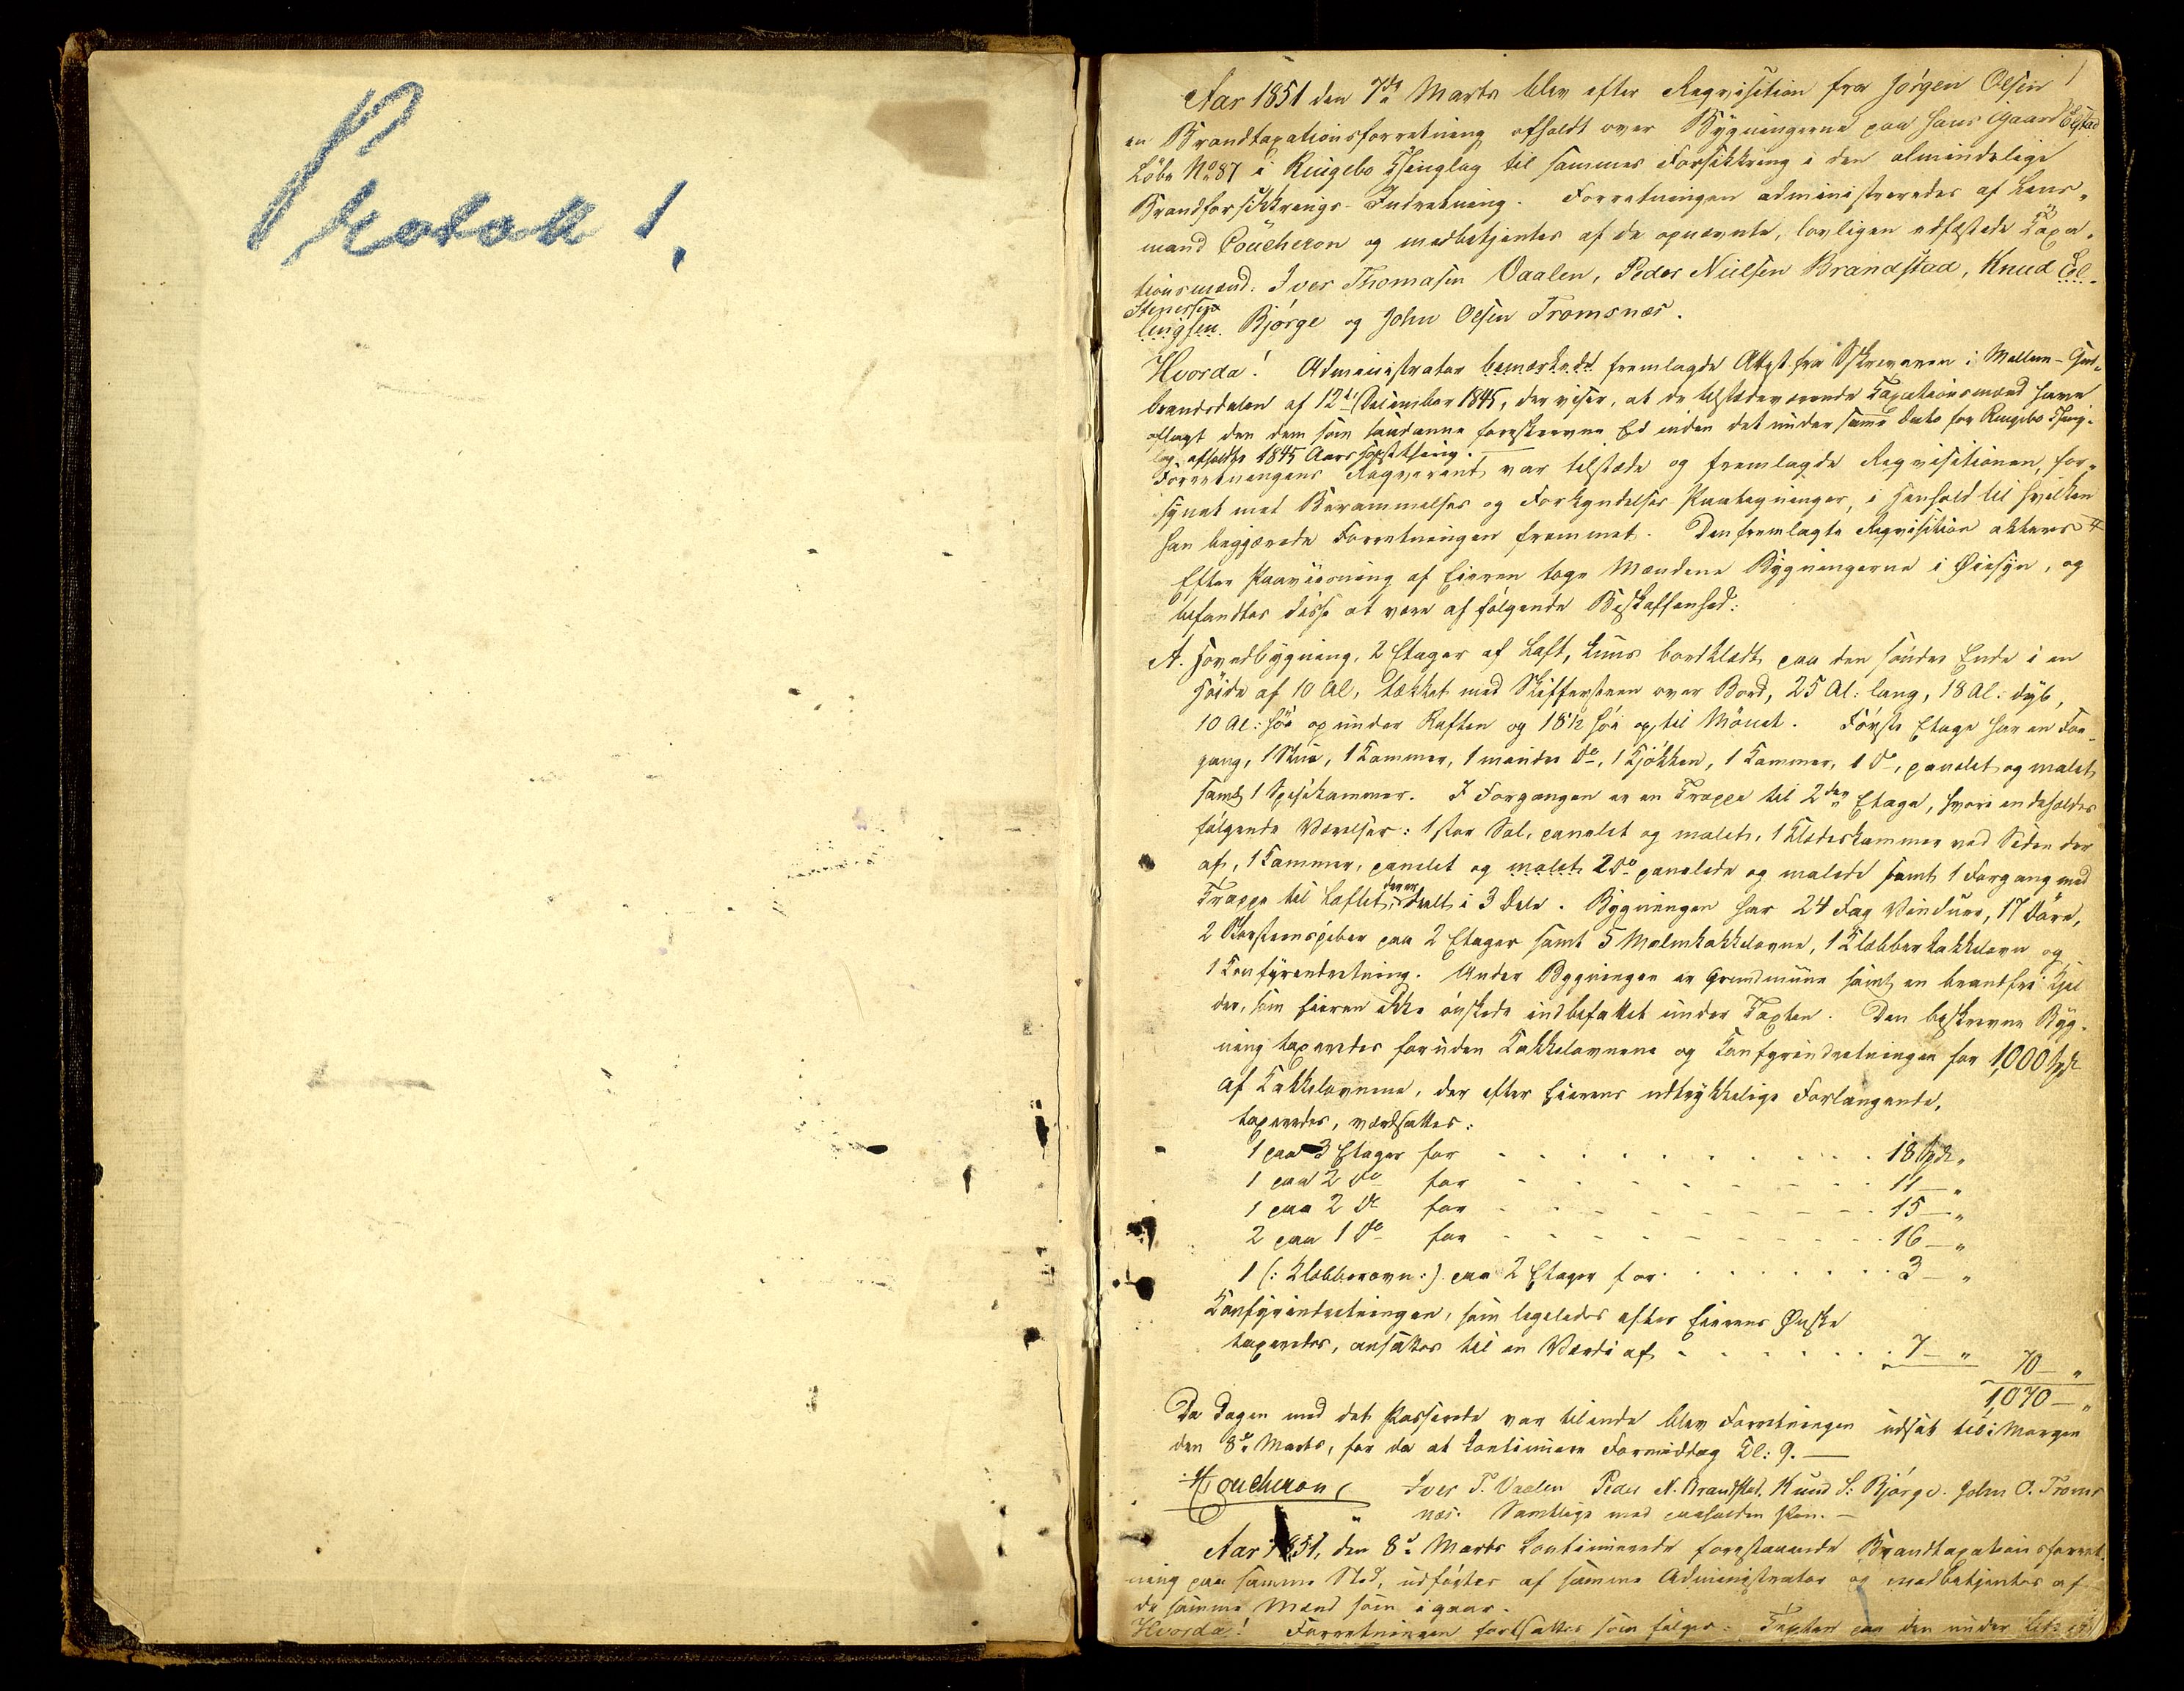 Protok 1.
1
Aar 1851 den 7de Marts blev efter Reqvisition fra Jørgen Olsen
en Brandtaxationsforretning afholdt over Bygningerne paa hans Gaard Elstad
Løbe No 87 i Ringebo Thinglag til sammes Forsikkring i den almindelige
Brandforsikkrings-Indretning. Forretningen administreredes af Lens-
mand Coucheron og medbetjentes af de opnævnte, lovligen edfæstede Taxa-
tionsmænd: Iver Thomasen Vaalen, Peder Nielsen Brandstad, Knud El-
Stenersen
lingsen Bjørge og John Olsen Tromsnæs.
Hvorda! Administrator bemærkede fremlagde Attest fra Sskriveren i Mellem-Gud-
brandsdalen af 12te December 1845, der viser, at de tilstedeværende Taxationsmænd have
aflagt den dem som saadanne foreskrevne Ed inden det under samme Dato for Ringebo Thing-
lag afholdte 1845 Aars Høstthing.
Forretningens Reqvirent var tilstæde og fremlagde Reqvisitionen, for-
synet med Berammelses og Forkyndelses Paategninger, i Henhold til hvilken
han begjærede Forretningen fremmet. Den fremlagte Reqvisition akteres
Efter Paaviisning af Eieren toge Mændene Bygningerne i Øiesyn, og
befandtes disse at være af følgende Beskaffenhed:
A. Hovedbygning, 2 Etager af Laft, kuns bordklædt paa den søndre Ende i en
Høide af 10 Al, tækket med Skiffersteen over Bord, 25 Al: lang, 18 Al: dyb,
10 Al: høi op under Raften og 18 1/2 høi op til Mønet. Første Etage har en For-
gang, 1 Stue, 1 Kammer, 1 mindre do, 1 Kjøkken, 1 Kammer, 1 do, panelet og malet,
samt 1 Spisekammer. I Forgangen er en Trappe til 2den Etage, hvori indeholdes
følgende Værelser: 1 stor Sal, panelet og malet, 1 Klædeskammer ved Siden der
af, 1 Kammer, panelet og malet, 2 do panelede og malede samt 1 Forgang med
Trappe til Loftet, der er deelt i 3 Dele. Bygningen har 24 Fag Vinduer, 17 Døre,
2 Skorsteenspiber paa 2 Etager samt 5 Malmkakkelovne, 1 Klæbberkakkelovn og
1 Komfyrindretning. Under Bygningen er Grundmuur samt en brandfri Kjel
der, som Eieren ikke ønskede indbefattet under Taxten. Den beskrevne Byg-
ning taxeredes foruden Kakkelovnene og Komfyrindretningen for 1,000 Spd
Af Kakkelovnene, der efter Eierens udtrykkelige Forlangende,
taxeredes, værdsattes:
1 paa 3 Etager for 18 Spd „
1 paa 2 do for 11 — „
1 paa 2 do for 15 — „
2 paa 1 do for 16 — „
1 (: Klæbberovn :) paa 2 Etager for 3 — „
Komfyrindretningen, som legeledes efter Eierens Ønske
taxeredes, ansattes til en Værdi af 7 — „ 70 — „
1,070 — „
Da Dagen med det Passerede var tilende blev Forretningen udsat til i Morgen
den 8de Marts, for da at kontinuere Formiddag Kl: 9. —
Coucheron Iver T. Vaalen Peder N. Brandstad. Knud S. Bjørge. John O. Troms
næs. Samtlige med paaholden Pen. —
Aar 1851, den 8de Marts kontinuerede forestaaende Brandtaxationsforret-
ning paa samme Sted, udførtes af samme Administrator og medbetjentes af
de samme Mænd som igaar.
Hvorda! Forretningen fortsattes som følger: Taxten paa den under Litr: